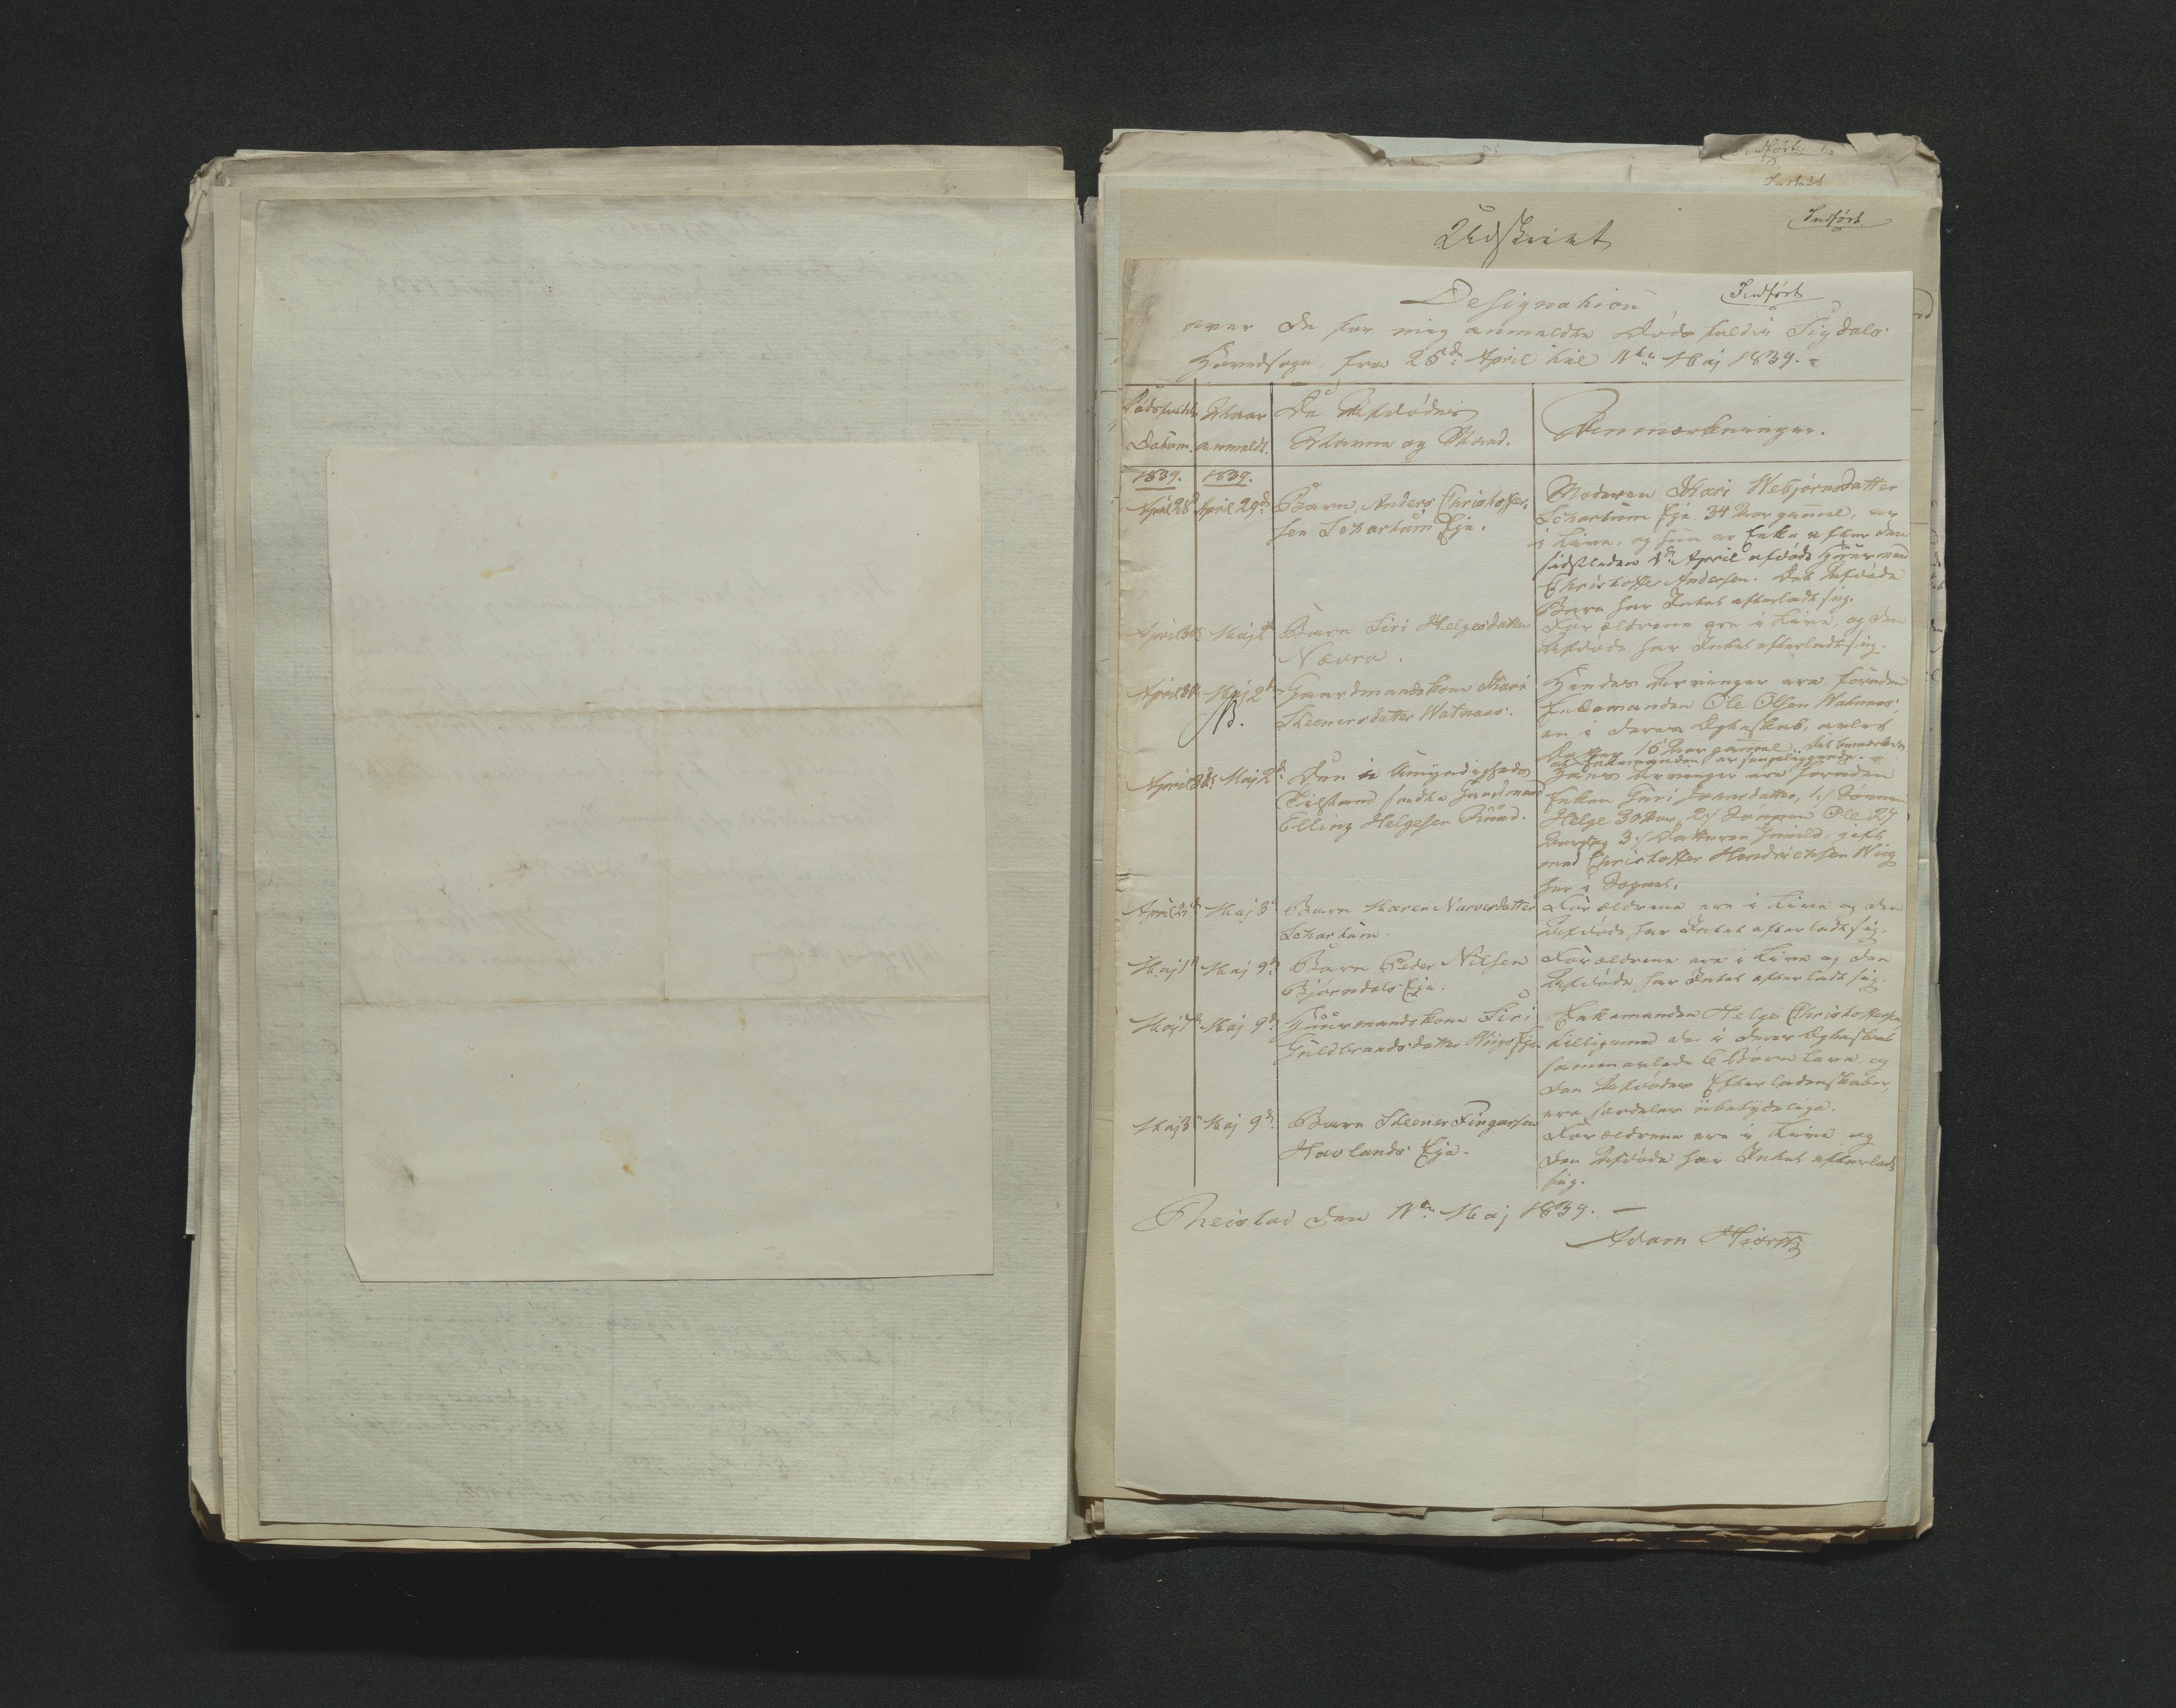 Indført
Udskrivt
Indført
Designation
over de for mig anmeldte Dødsfald i Sigdals
Hovedsogn, fra 26de April til 11te Maj 1839.
Dødsfaldets
Datum.
Naar
anmeldt.
De Afdødes
Navne og Stand.
Anmærkninger.
1839.
1839.
April 28d
April 29de
Barn, Anders Christoffer-
sen Schartum Eje.
Moderen Kari Webjørnsdatter
Schartum Eje, 34 Aar gammel, er
i Live, og hun er Enke efter den
sidstleden April afdøde Huusmand
Christoffer Andersen. Det Afdøde
Barn har Intet efterladt sig.
April 30
Maj 2d
Barn Siri Helgesdatter
Nævra.
Forældrene ere i Live, og den
Afdøde har Intet efterladt sig.
April
Maj 2d
NB.
Gaardmandskone Kari
Steenersdatter Watnaas.
Hendes Arvinger ere, foruden
Enkemanden Ole Olsen Watnaas,
en i deres Ægteskab avlet
Datter 16 Aar gammel. Det bemærkes
at Enkemanden er sengeliggende.
April
Maj 2d
Den i Umyndigheds
Tilstand satte Gaardmand
Elling Helgesen Ruud.
Hans Arvinger ere foruden
Enken Guri Joensdatter, 1./ Sønnen
Helge 30 Aar, 2./ Sønnen Ole 27
Aar, og 3./ Datteren Gunild, gift
med Christoffer Hendrichsen Wiig
her i Sognet.
April 25d
Maj 3d
Barn Maren Narvesdatter
Schartum.
Forældrene ere i Live og den
Afdøde har Intet efterladt sig.
Maj 1d
Maj 9d
Barn Peder Nilsen
Bjørndals Eje.
Forældrene ere i Live og den
Afdøde har Intet efterladt sig.
Maj 7d
Maj 9d
Huusmandskone Siri
Guldbrandsdatter Wiigs Eje.
Enkemanden Helge Christoffersen
tilligemed de i deres Ægteskab
sammenavlede 6 Børn leve, og
den Afdødes Efterladenskaber,
ere særdeles ubetydelige.
Maj 3d
Maj 9d
Barn Steener Fingarsen
Havlands Eje.
Forældrene ere i Live og
den Afdøde har Intet efterladt
sig.
Theistad den 11te Maj 1839.
Adam Hiorth